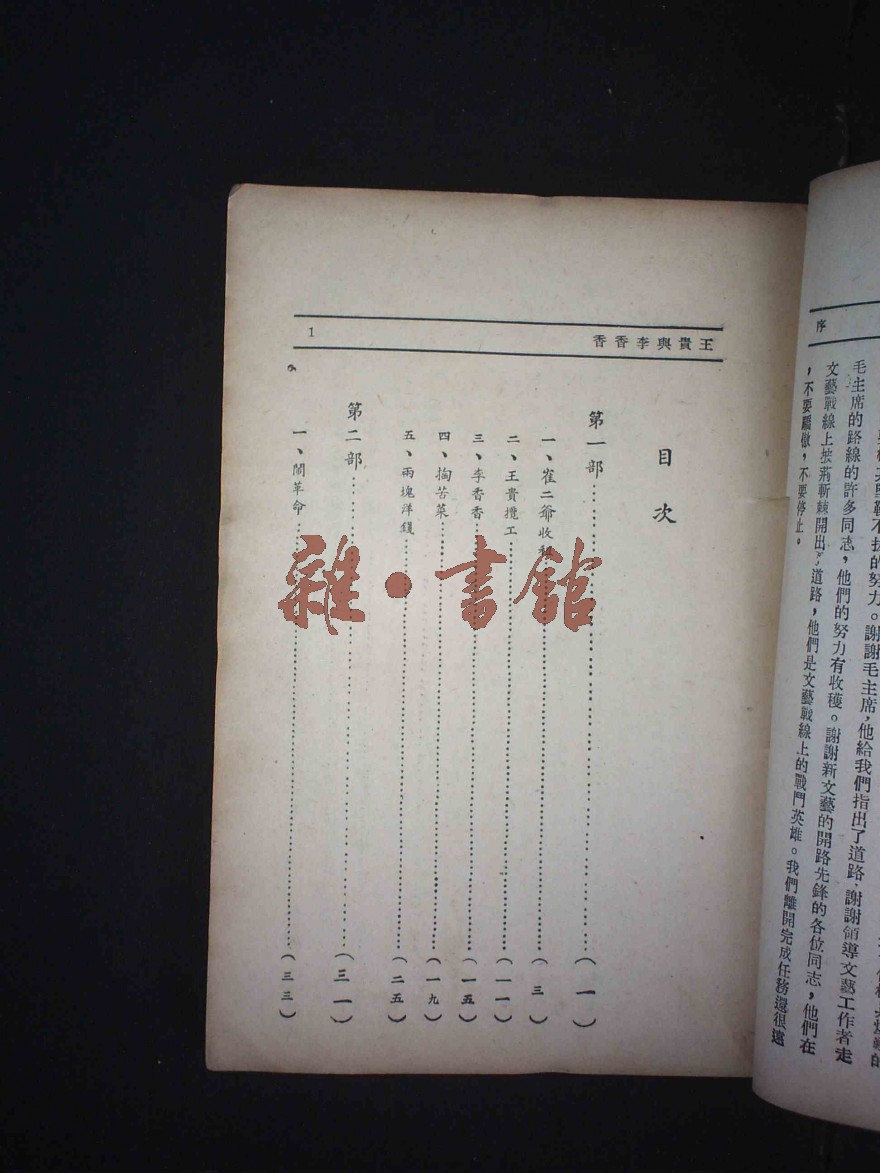 序
毛主席的路線的許多同志，他們的努力有收穫。謝謝新文藝的開路先鋒的各位同志，他們在
文藝戰線上披荊斬棘開出了道路，他們是文藝戰線上的戰鬥英雄。我們離開完成任務還很遠
，不要驕傲，不要停止。
王貴與李香香
1
目次
第一部……(一)
一、崔二爺收租……(三)
二、王貴攬工……(一一)
三、李香香……(一五)
四、掏苦菜……(一九)
五、兩塊洋錢……(二五)
第二部……(三一)
一、鬧革命……(三三)
雜·書館